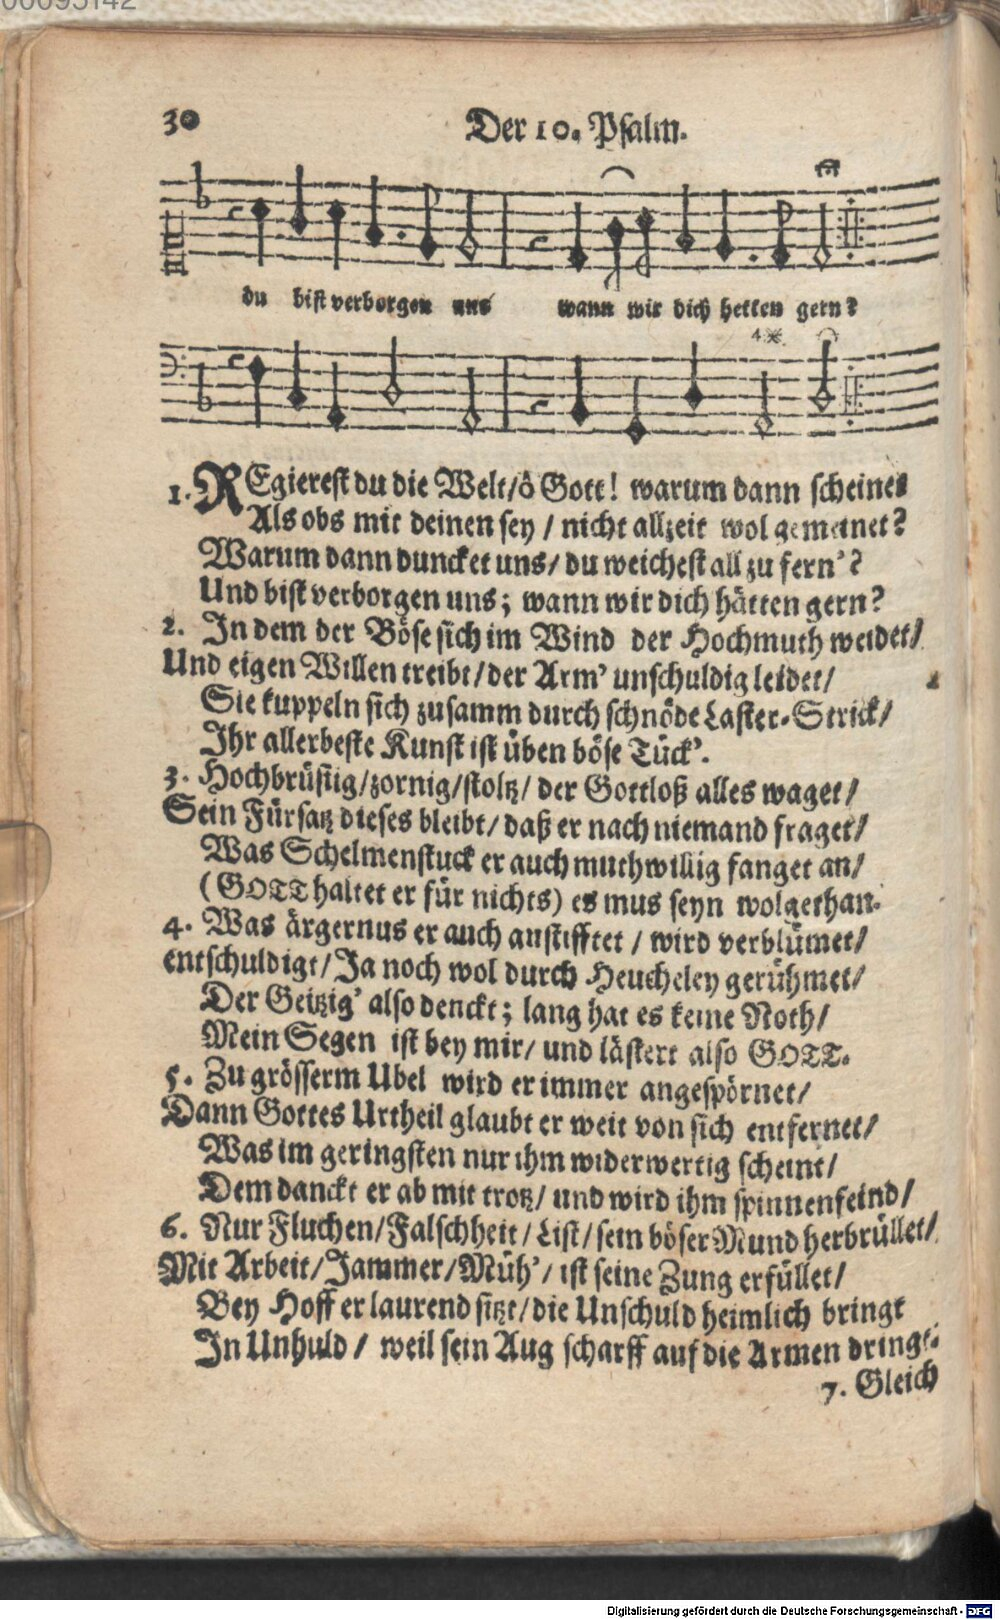 30
Der 10. Psalm.
du bist verborgen uns wann wir dich hetten gern?
4
1. REgierest du die Welt/ô Gott! warum dann scheinet
Als obs mit deinen sey / nicht allzeit wol gemeinet?
Warum dann duncket uns/ du weichest all zu fern'?
Und bist verborgen uns; wann wir dich hätten gern?
2. In dem der Böse sich im Wind der Hochmuth weidet/
Und eigen Willen treibt/der Arm' unschuldig leidet/
Sie kuppeln sich zusamm durch schnöde Laster-Strick/
Ihr allerbeste Kunst ist üben böse Tück'.
3. Hochbrüstig/zornig/stoltz/ der Gottloß alles waget/
Sein Fürsatz dieses bleibt/ daß er nach niemand fraget/
Was Schelmenstuck er auch muthwillig fanget an/
(GOTT haltet er für nichts) es mus seyn wolgethan.
4. Was ärgernus er auch anstifftet / wird verblümet/
entschuldigt/Ja noch wol durch Heucheley gerühmet/
Der Geitzig' also denckt; lang hat es keine Noth/
Mein Segen ist bey mir/ und lästert also GOTT.
5. Zu grösserm Ubel wird er immer angespörnet/
Dann Gottes Urtheil glaubt er weit von sich entfernet/
Was im geringsten nur ihm widerwertig scheint/
Dem danckt er ab mit trotz/ und wird ihm spinnenfeind/
6. Nur Fluchen/Falschheit/List/sein böser Mund herbrüllet/
Mit Arbeit/Jammer/Müh'/ ist seine Zung erfüllet/
Bey Hoff er laurend sitzt/die Unschuld heimlich bringt
In Unhuld / weil sein Aug scharff auf die Armen dringt.
7. Gleich
Digitalisierung gefördert durch die Deutsche Forschungsgemeinschaft - DFG